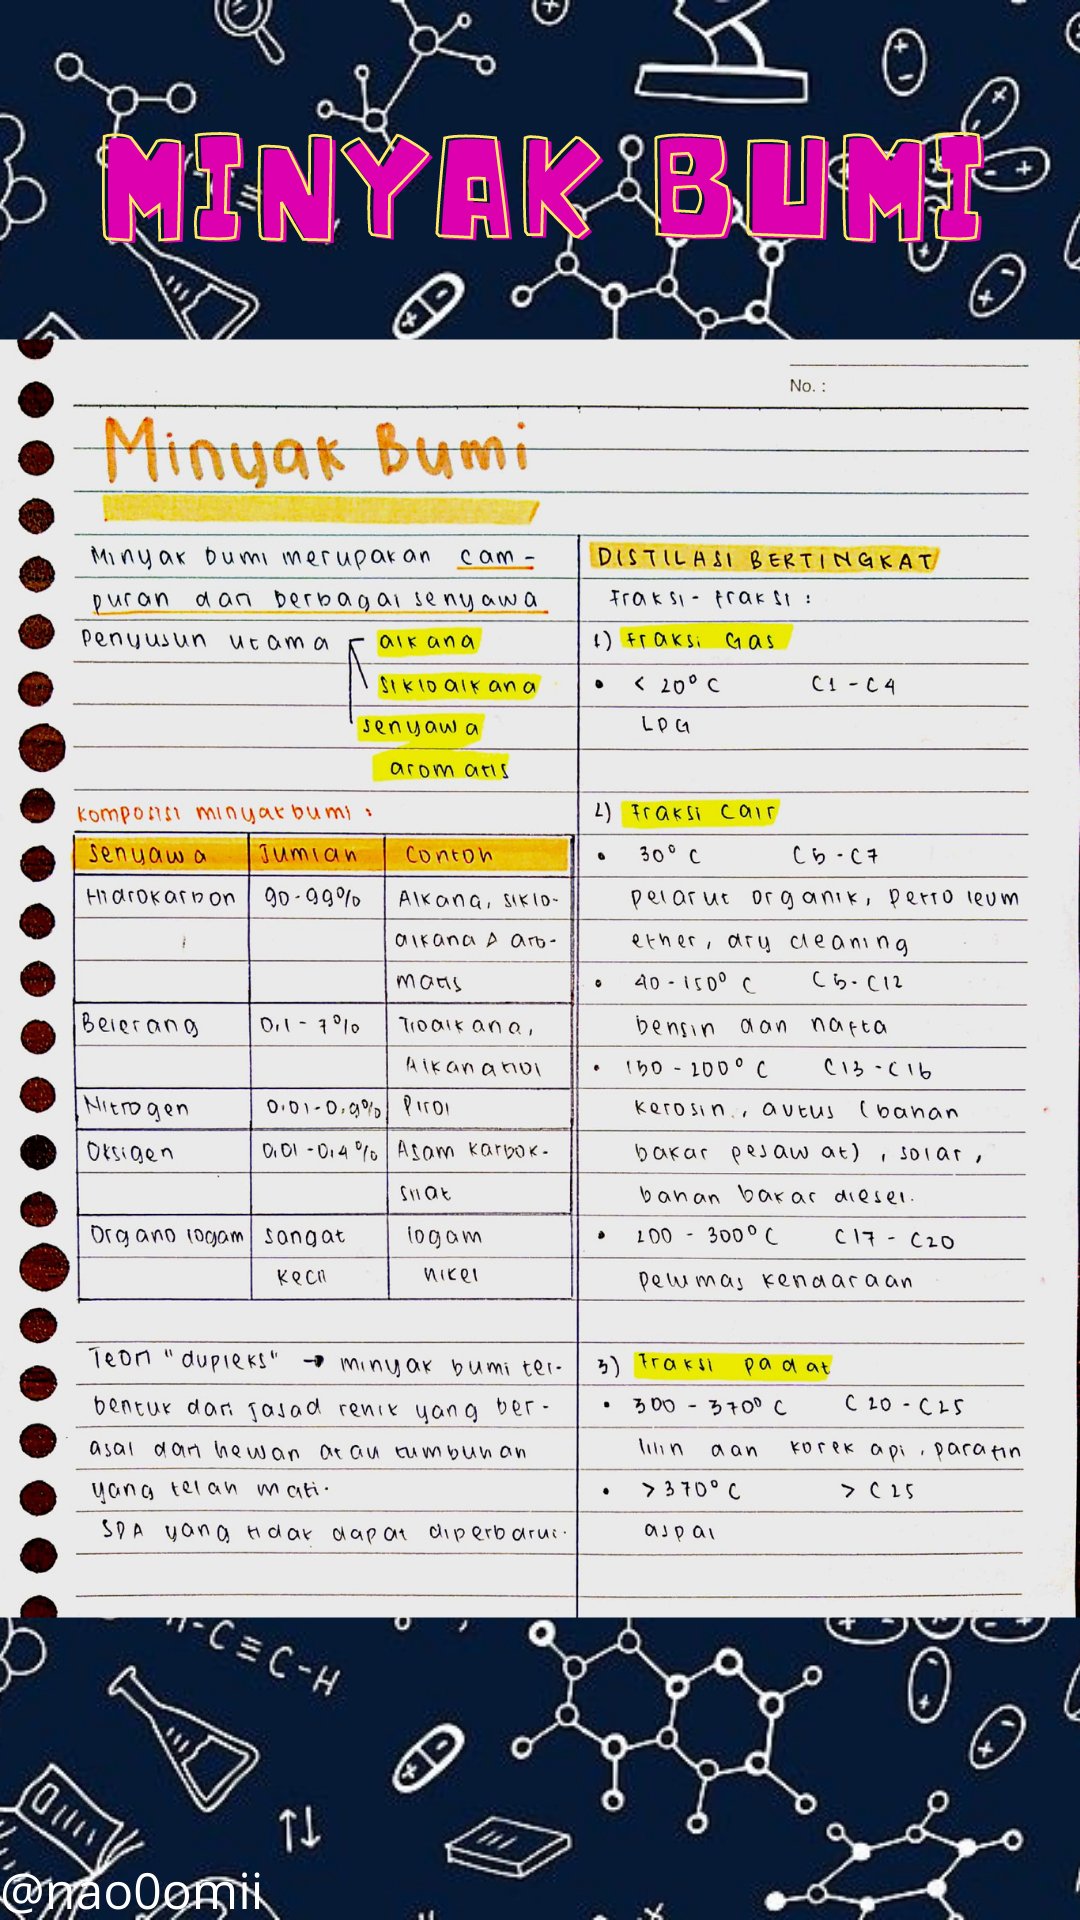 MINYAK BUMI
No. :
Minyak Bumi
Minyak bumi merupakan cam-
puran dari berbagai senyawa
Penyusun utama
alkana
sikloalkana
senyawa
aromatis
Komposisi minyak bumi :
Senyawa Jumlah Contoh
Hidrokarbon 90-99% Alkana, siklo-
alkana & aro-
matis
Belerang 0,1 - 7% Tioalkana,
Alkanatiol
Nitrogen 0,01-0,9% Pirol
Oksigen 0,01-0,4% Asam karbok-
silat
Organo logam sangat logam
kecil nikel
Teori "dupleks" → minyak bumi ter-
bentuk dari jasad renik yang ber-
asal dari hewan atau tumbuhan
yang telah mati.
SDA yang tidak dapat diperbarui.
DISTILASI BERTINGKAT
Fraksi-fraksi :
1) Fraksi Gas
• < 20° C C1 - C4
LPG
2) Fraksi Cair
• 30° C C5 - C7
pelarut organik, petroleum
ether, dry cleaning
• 40 - 150° C C5 - C12
bensin dan nafta
• 150 - 200° C C13 - C16
kerosin, avtus (bahan
bakar pesawat), solar,
bahan bakar diesel.
• 200 - 300° C C17 - C20
pelumas kendaraan
3) Fraksi padat
• 300 - 370° C C20 - C25
lilin dan korek api, parafin
• > 370° C > C25
aspal
H-C≡C-H
@nao0omii